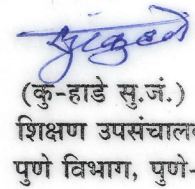 (कु-हाडे सु.जं.)
शिक्षण उपसंचालक
पुणे विभाग, पुणे.